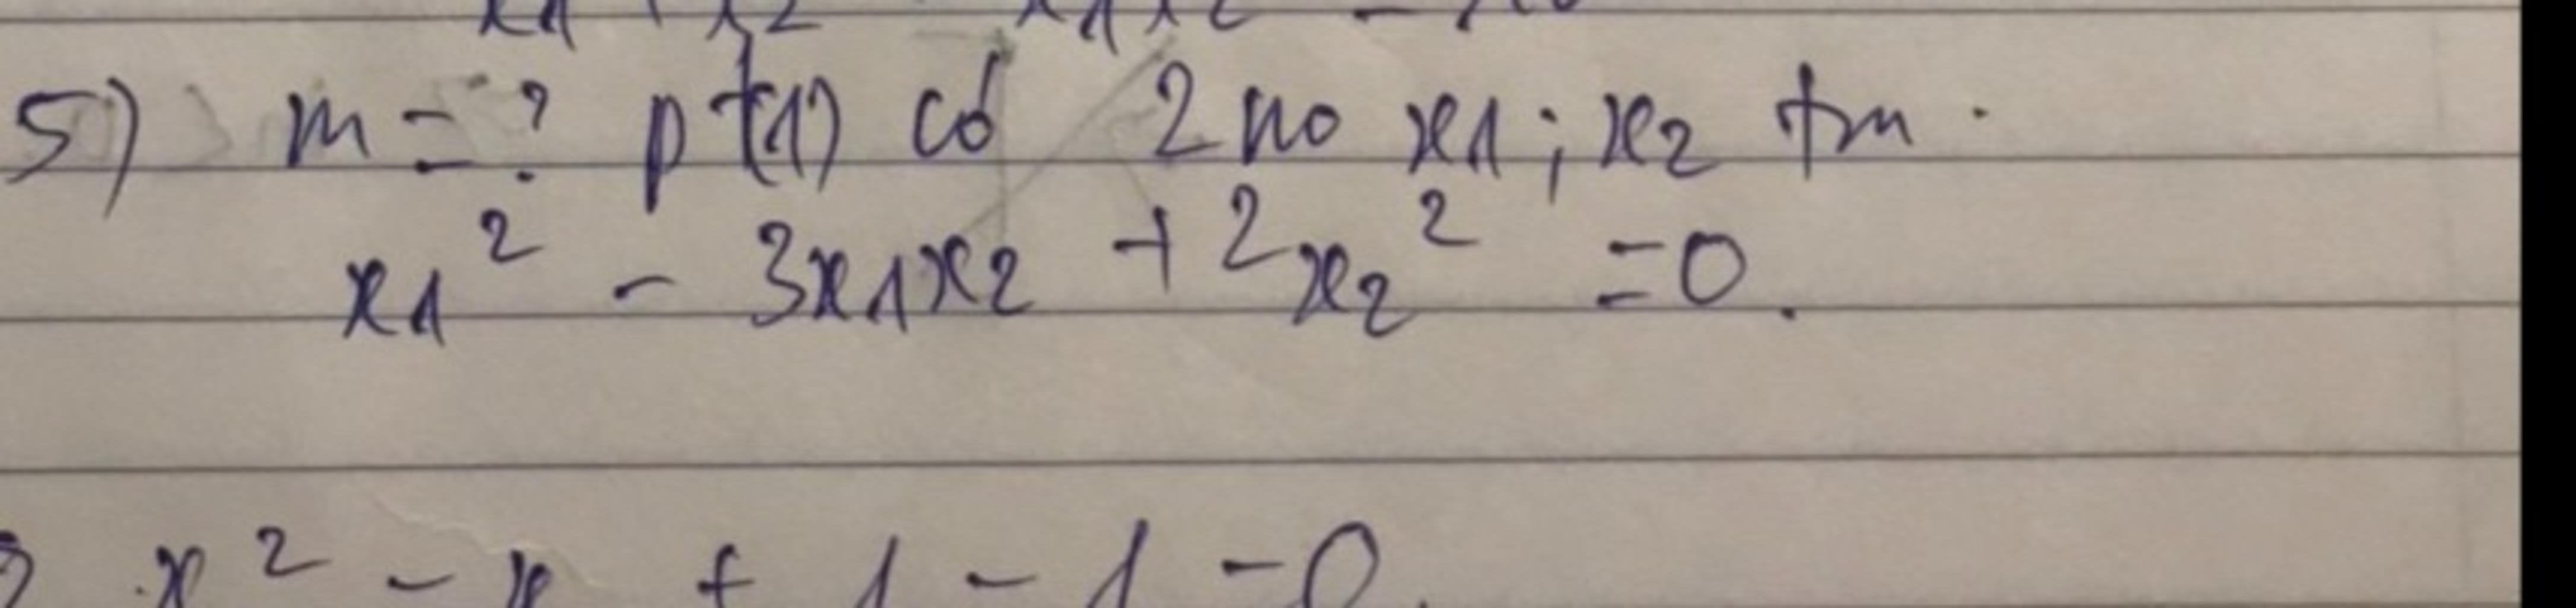 5) m = ? pt(1) có 2 no x1; x2 tm.
x1² - 3x1x2 + 2x2² = 0.
x² - x + 1 - 1 = 0.